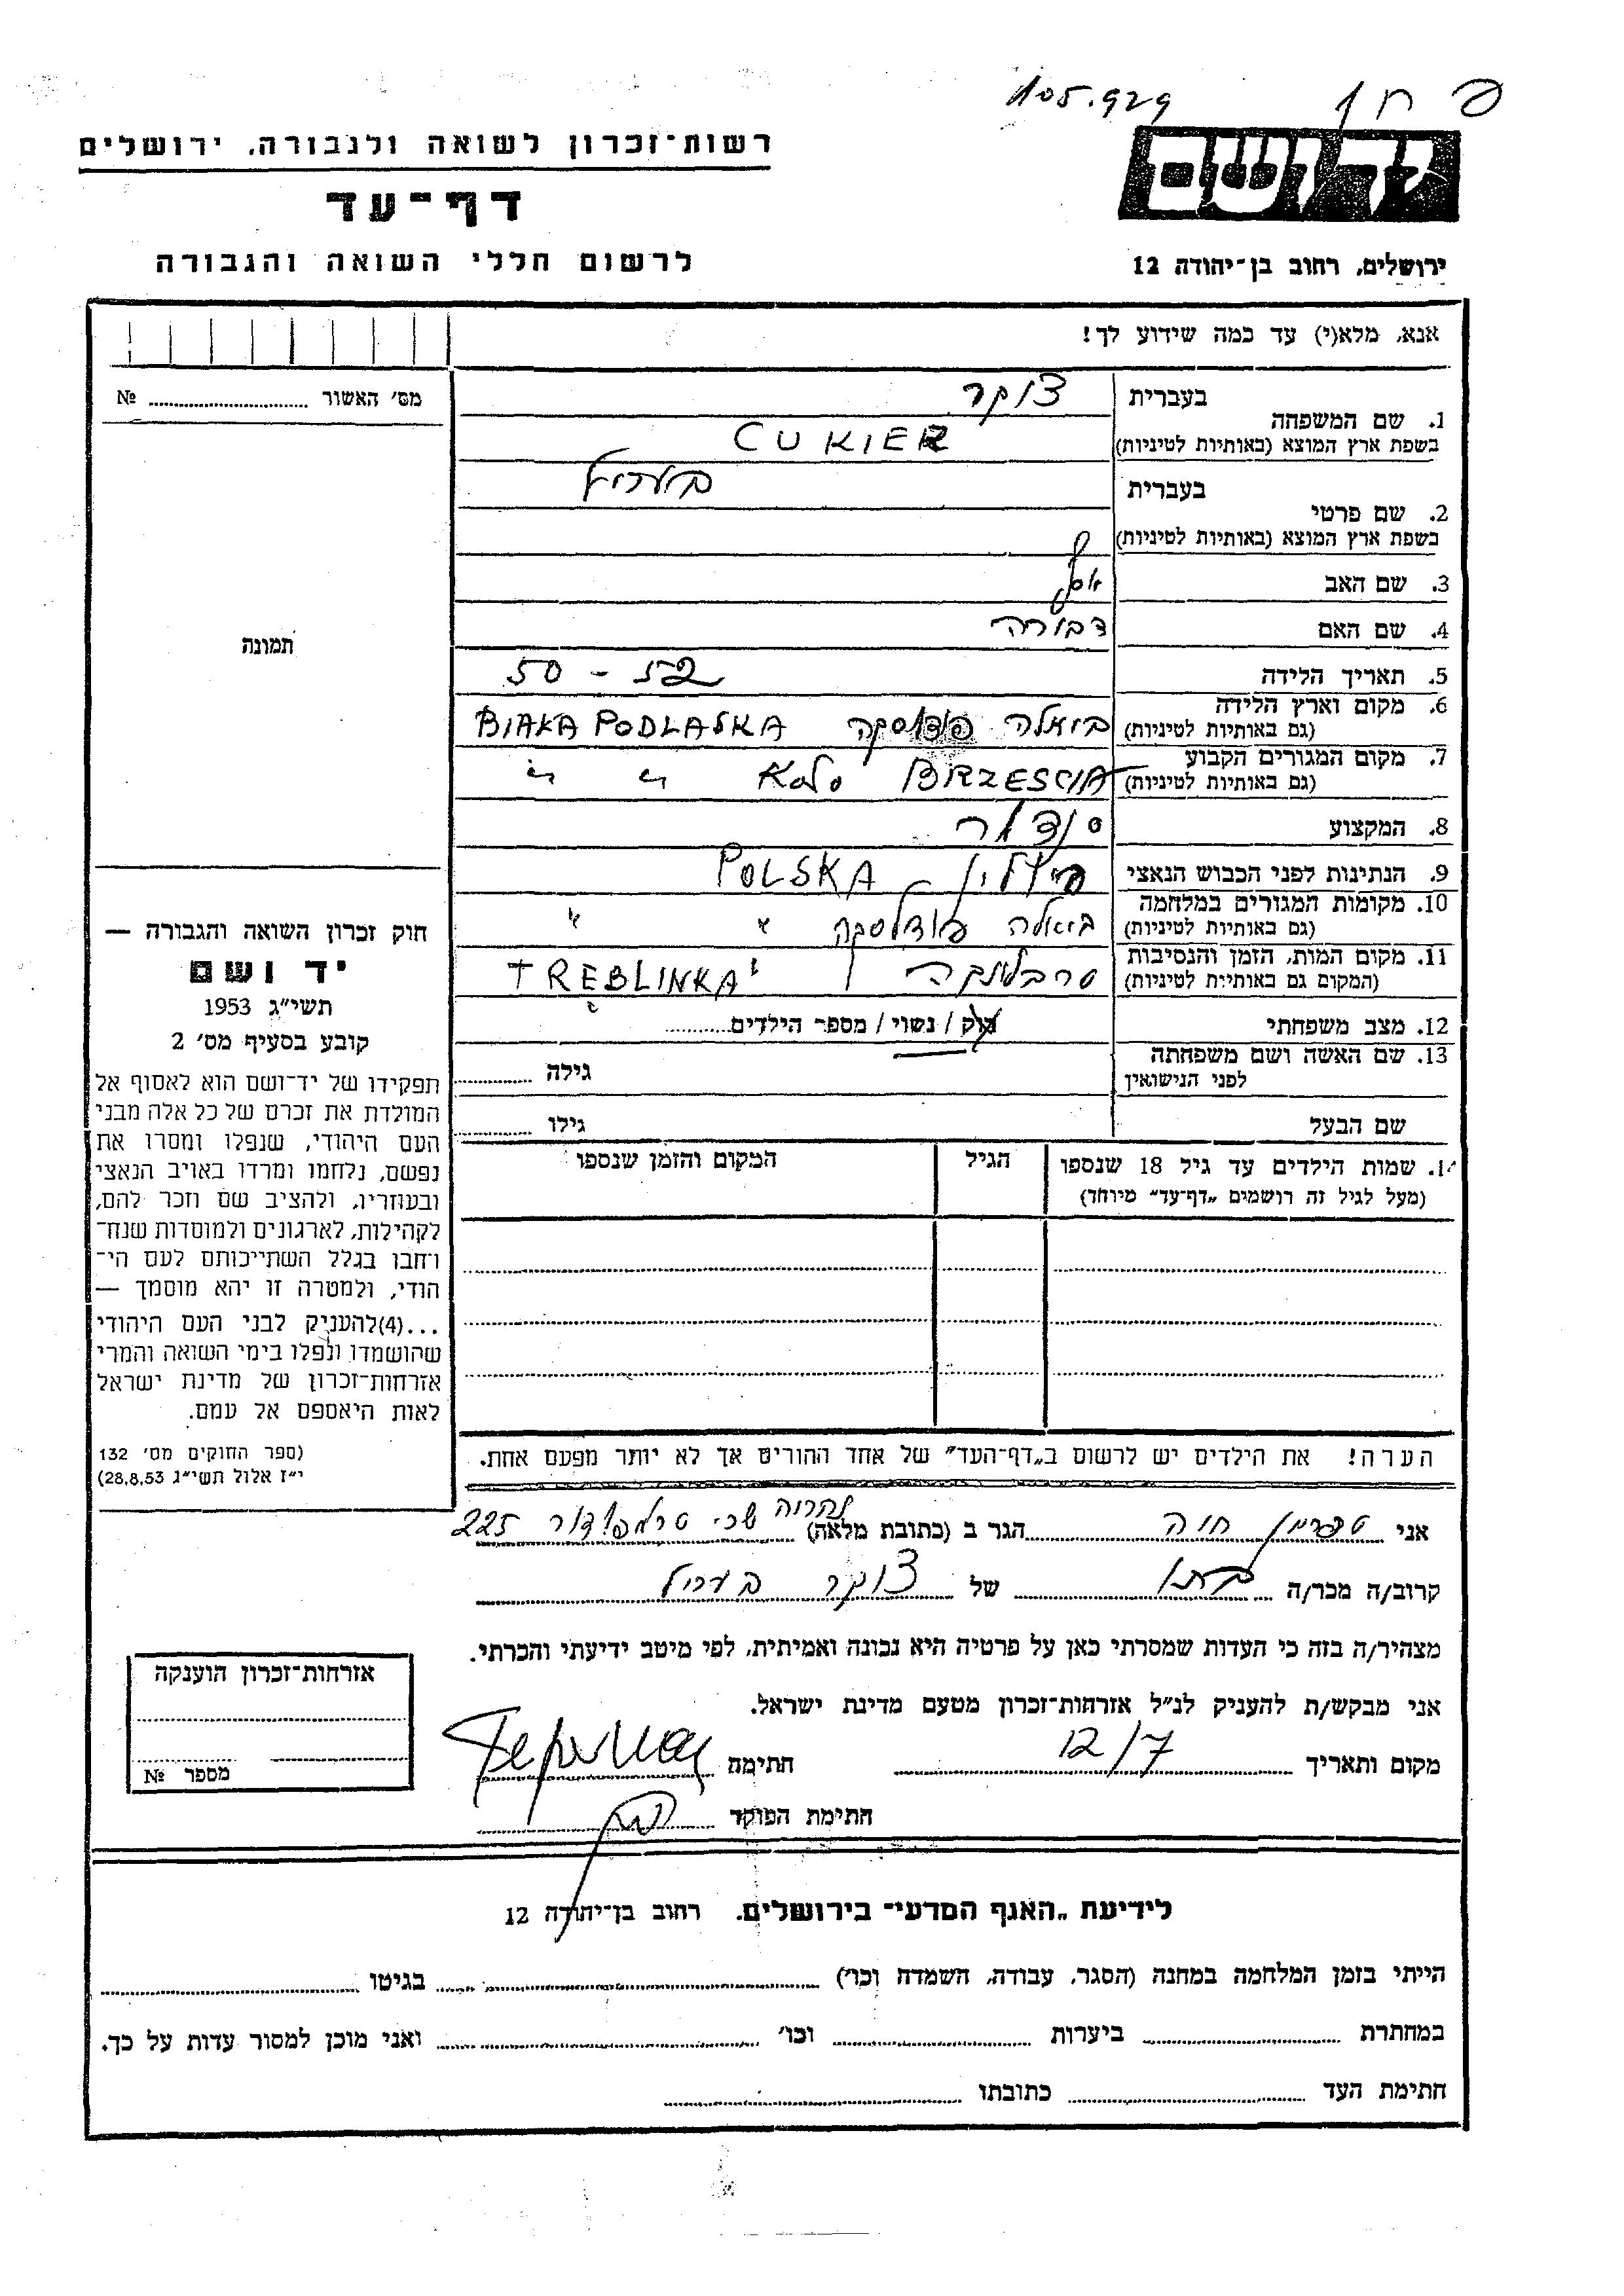 105.929
רשות-זכרון לשואה ולגבורה, ירושלים
דף-עד
לרשום חללי השואה והגבורה
ידושם
ירושלים, רחוב בן-יהודה 12
אנא, מלא(י) עד כמה שידוע לך!
מס׳ האשור № ..........
תמונה
1. שם המשפחה
בעברית צוקר
בשפת ארץ המוצא (באותיות לטיניות) CUKIER
2. שם פרטי
בעברית
בשפת ארץ המוצא (באותיות לטיניות)
3. שם האב
4. שם האם דבורה
5. תאריך הלידה 50 - 52
6. מקום וארץ הלידה (גם באותיות לטיניות) ביאלה פודלסקה BIAKA PODLASKA
7. מקום המגורים הקבוע (גם באותיות לטיניות) BRZESCIA KOLO " "
8. המקצוע סנדלר
9. הנתינות לפני הכבוש הנאצי פולין – POLSKA
10. מקומות המגורים במלחמה (גם באותיות לטיניות) ביאלה פודלסקה " "
11. מקום המות, הזמן והנסיבות (המקום גם באותיות לטיניות) טרבלינקה TREBLINKA
12. מצב משפחתי רוק / נשוי / מספר הילדים..........
13. שם האשה ושם משפחתה לפני הנישואין גילה ..........
שם הבעל גילו ..........
14. שמות הילדים עד גיל 18 שנספו (מעל לגיל זה רושמים „דף-עד״ מיוחד)
הגיל
המקום והזמן שנספו
חוק זכרון השואה והגבורה —
יד ושם
תשי״ג 1953
קובע בסעיף מס׳ 2
תפקידו של יד-ושם הוא לאסוף אל
המולדת את זכרם של כל אלה מבני
העם היהודי, שנפלו ומסרו את
נפשם, נלחמו ומרדו באויב הנאצי
ובעוזריו, ולהציב שם וזכר להם,
לקהילות, לארגונים ולמוסדות שנח-
רחבו בגלל השתייכותם לעם הי-
הודי, ולמטרה זו יהא מוסמך —
...(4)להעניק לבני העם היהודי
שהושמדו ונפלו בימי השואה והמרי
אזרחות-זכרון של מדינת ישראל
לאות היאספם אל עמם.
(ספר החוקים מס׳ 132
י״ז אלול תשי״ג 28,8,53)
הערה! את הילדים יש לרשום ב„דף-העד״ של אחד ההורים אך לא יותר מפעם אחת.
אני טפרמן חוה הגר ב (כתובת מלאה) נהריה שכ׳ טרמפלדור 225
קרוב/ה מכר/ה בתו של צוקר
מצהיר/ה בזה כי העדות שמסרתי כאן על פרטיה היא נכונה ואמיתית, לפי מיטב ידיעתי והכרתי.
אני מבקש/ת להעניק לנ״ל אזרחות-זכרון מטעם מדינת ישראל.
מקום ותאריך 12/7 חתימה
חתימת הפוקד
אזרחות-זכרון הוענקה
מספר №
לידיעת „האגף המדעי״ בירושלים. רחוב בן-יהודה 12
הייתי בזמן המלחמה במחנה (הסגר, עבודה, השמדה וכו׳) .......... בגיטו ..........
במחתרת .......... ביערות .......... וכו׳ .......... ואני מוכן למסור עדות על כך.
חתימת העד .......... כתובתו ..........